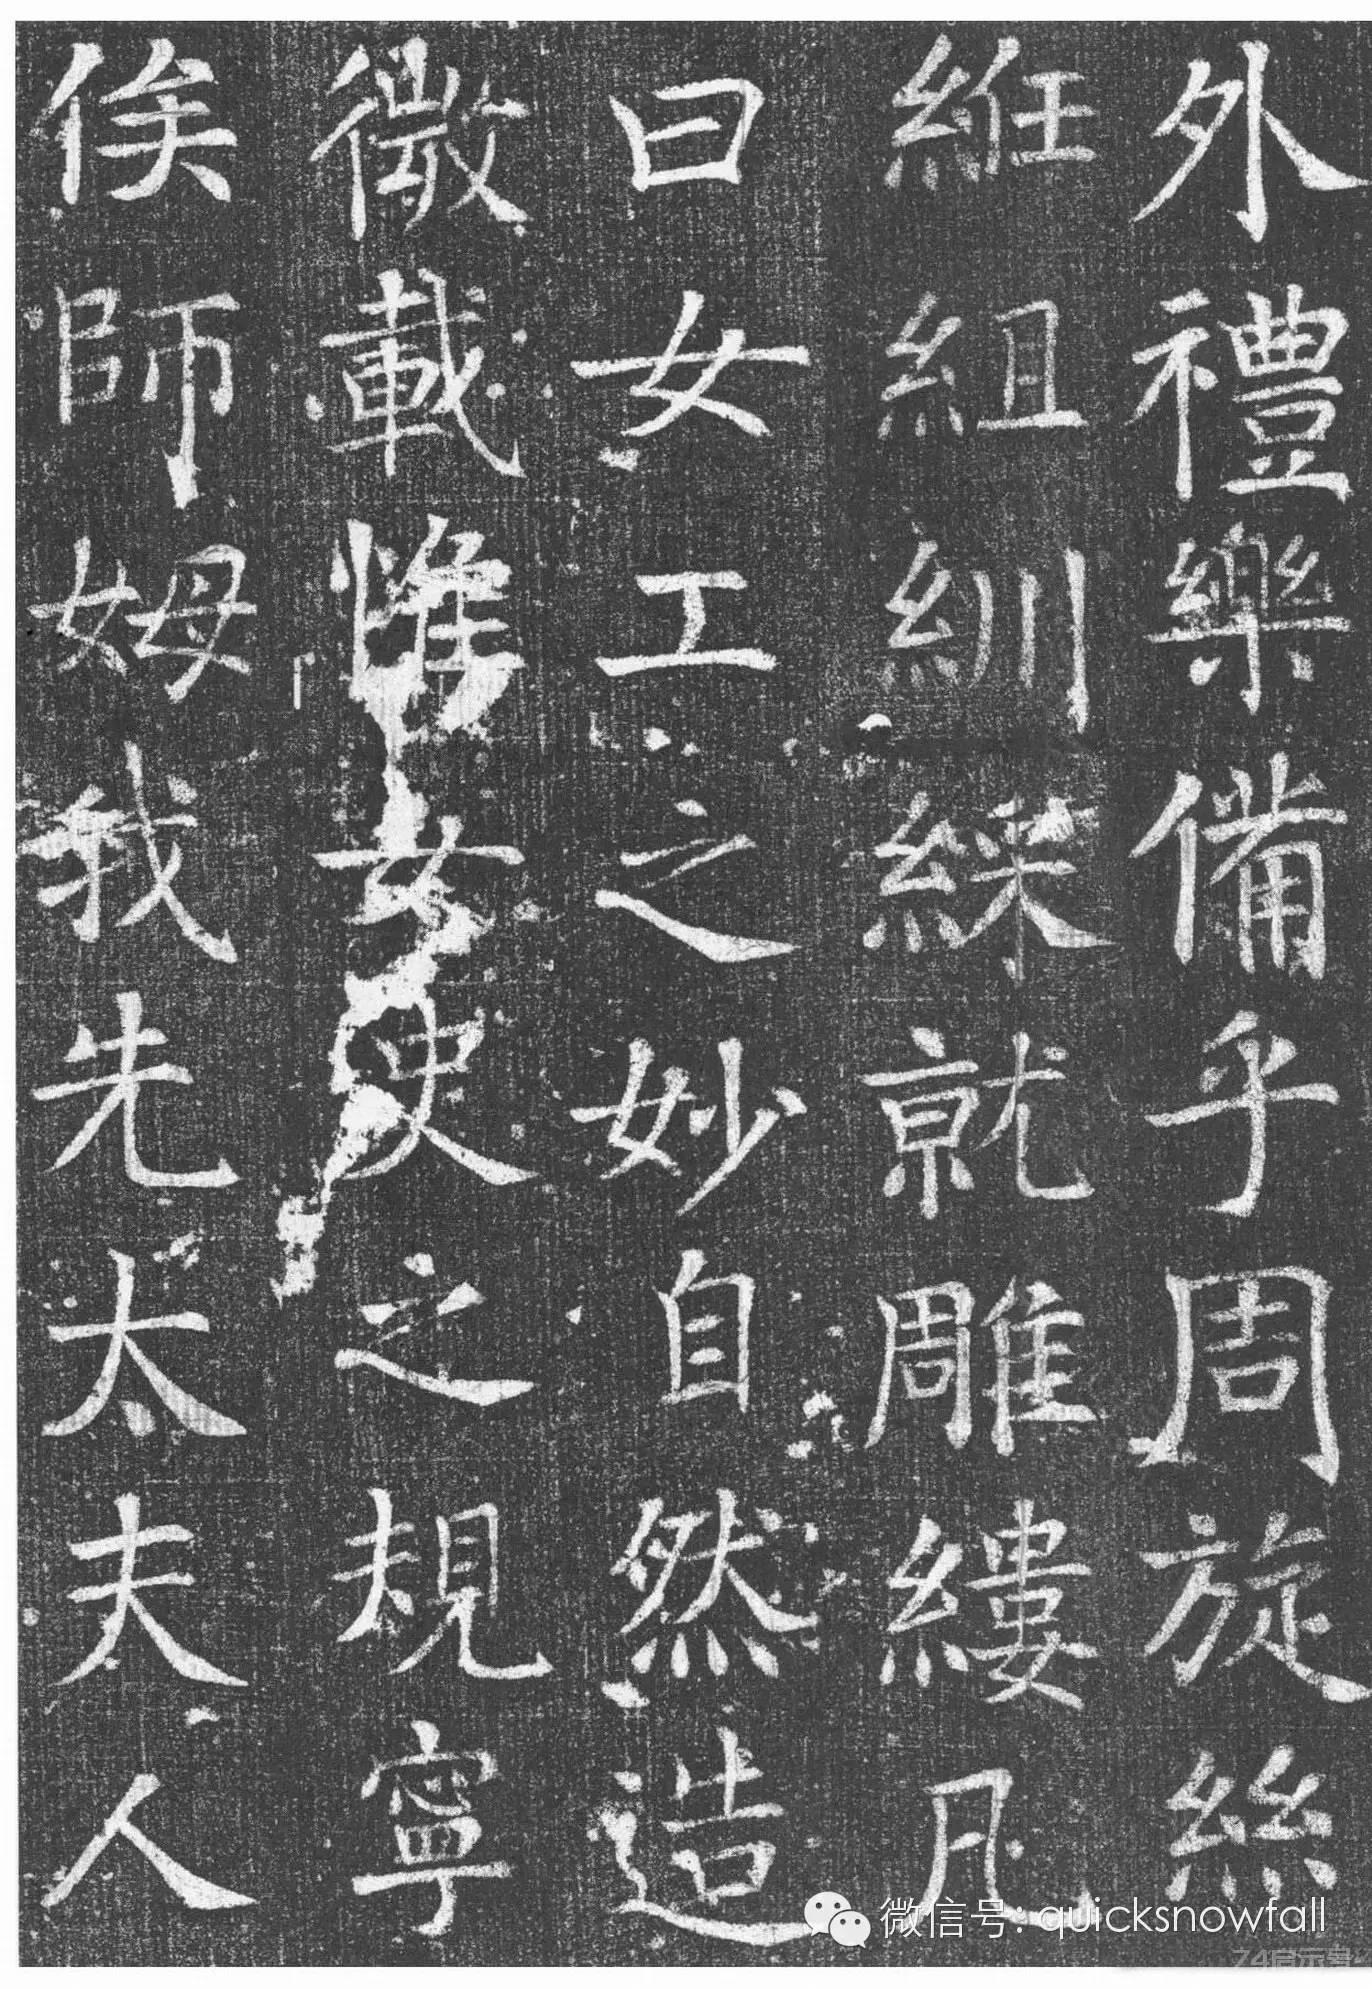 外禮樂備乎周旋絲
絍組紃綵就雕縷凡
曰女工之妙自然造
微載惟女史之規寧
俟師姆我先太夫人
微信号: quicksnowfall